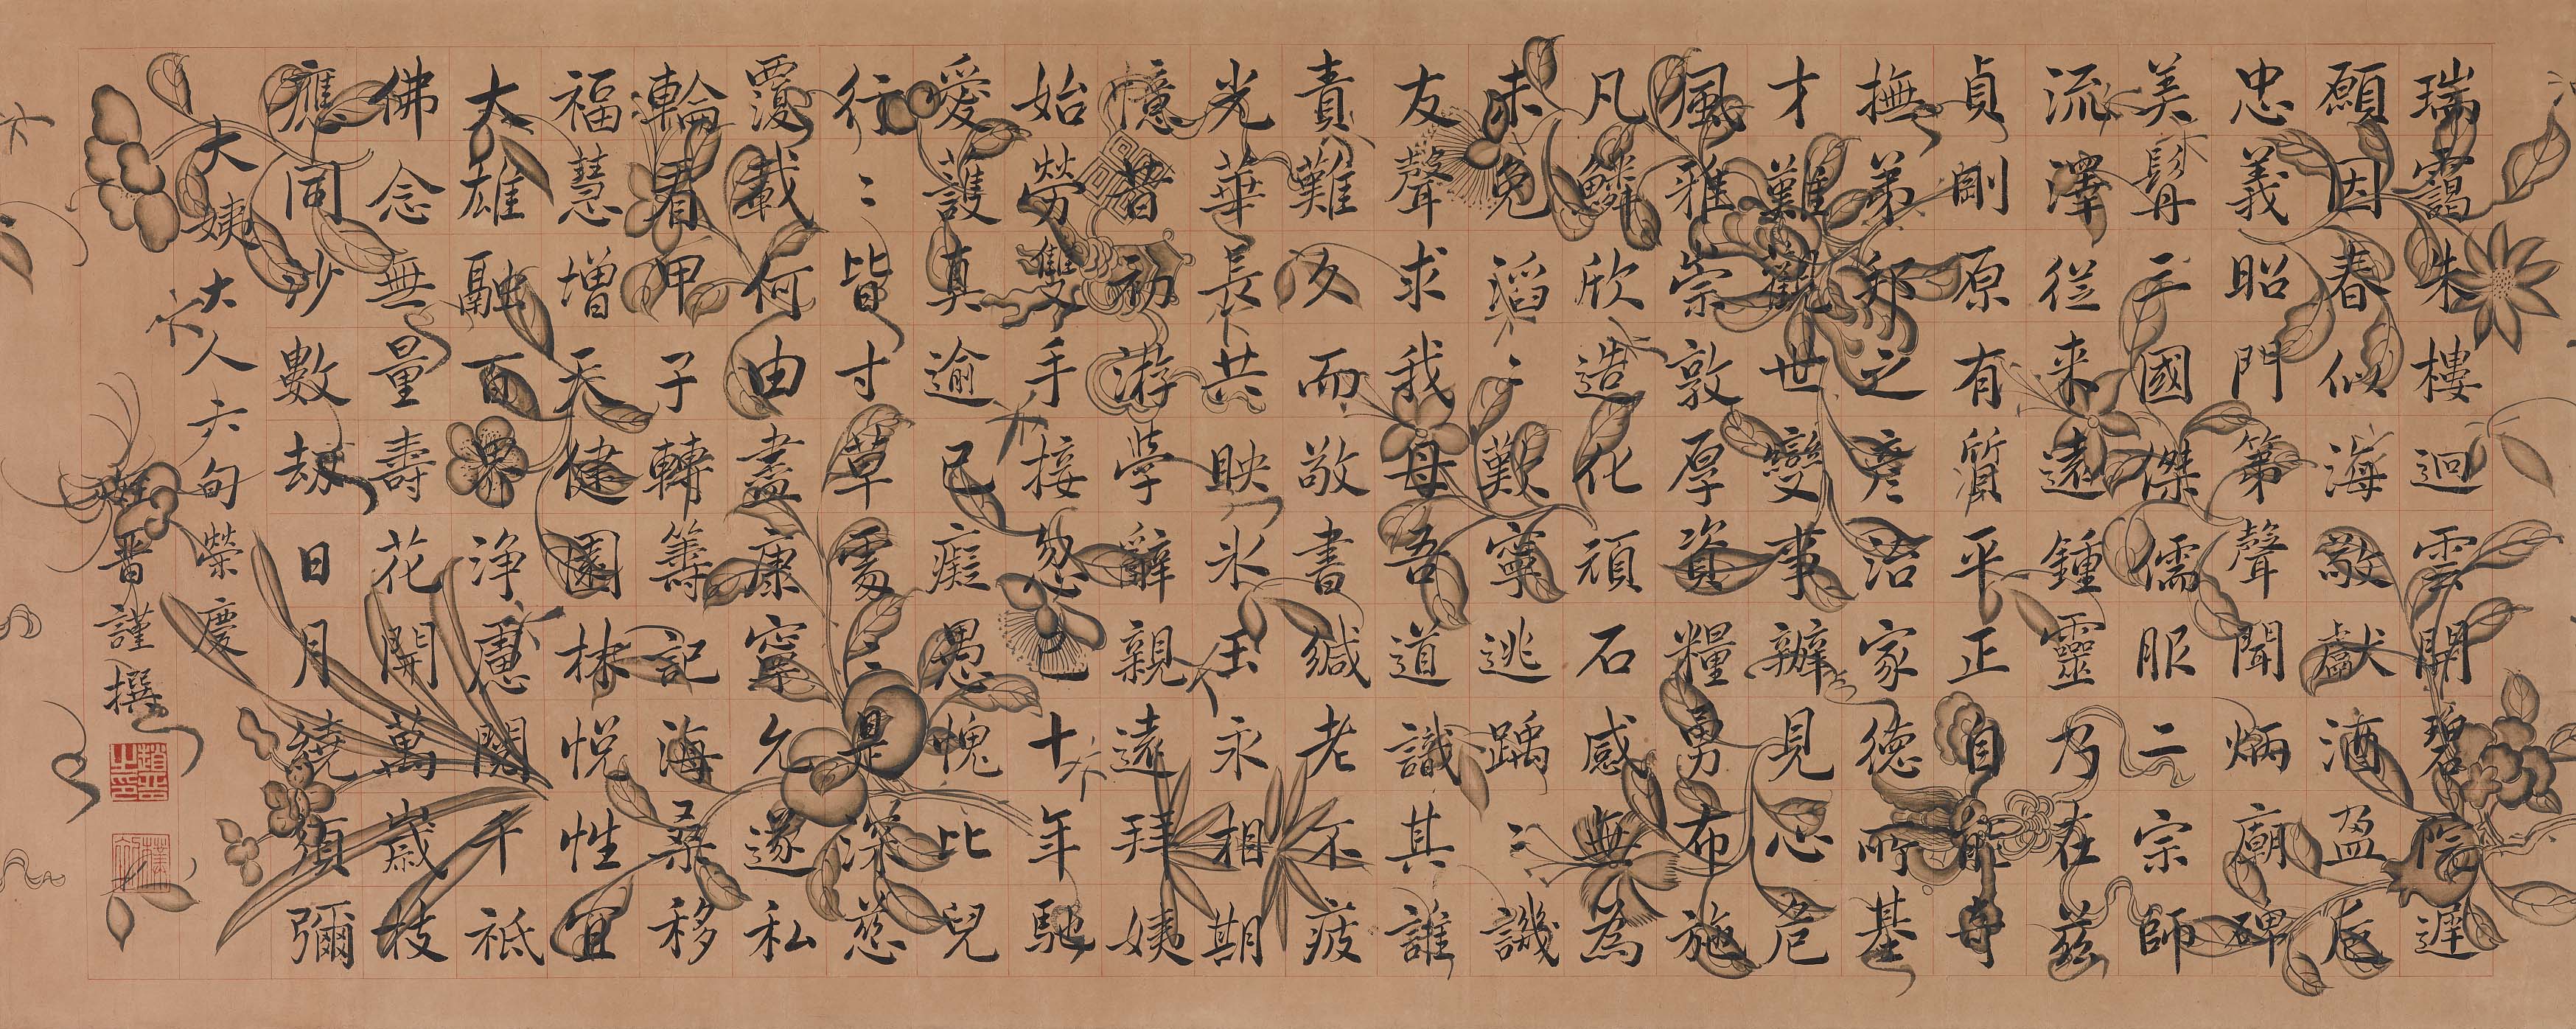 瑞靄朱樓迴雲開碧院遲
願因春似海敬獻酒盈卮
忠義昭門第聲聞炳廟碑
美髯三國傑儒服二宗師
流澤從来遠鍾靈乃在茲
貞剛原有質平正自能奇
撫弟邦之彥治家德所基
才難觀世變事辦見心危
風雅宗敦厚資糧勇布施
凡鱗欣造化頑石感無為
未免滔〻歎寧逃踽〻譏
友聲求我母吾道識其誰
責難久而敬書緘老不疲
光華長共映氷玉永相期
憶昔初游學辭親遠拜姨
始勞雙手接忽已十年馳
愛護真逾己癡愚愧比兒
行〻皆寸草處〻是深慈
覆載何由盡康寧允遂私
輪看甲子轉籌記海桑移
福慧增天健園林悅性宜
大雄融百界浄慮闢千祇
佛念無量壽花開萬歲枝
應同沙數劫日月繞須彌
大姨大人六旬榮慶
姪晋謹撰
趙晋之印